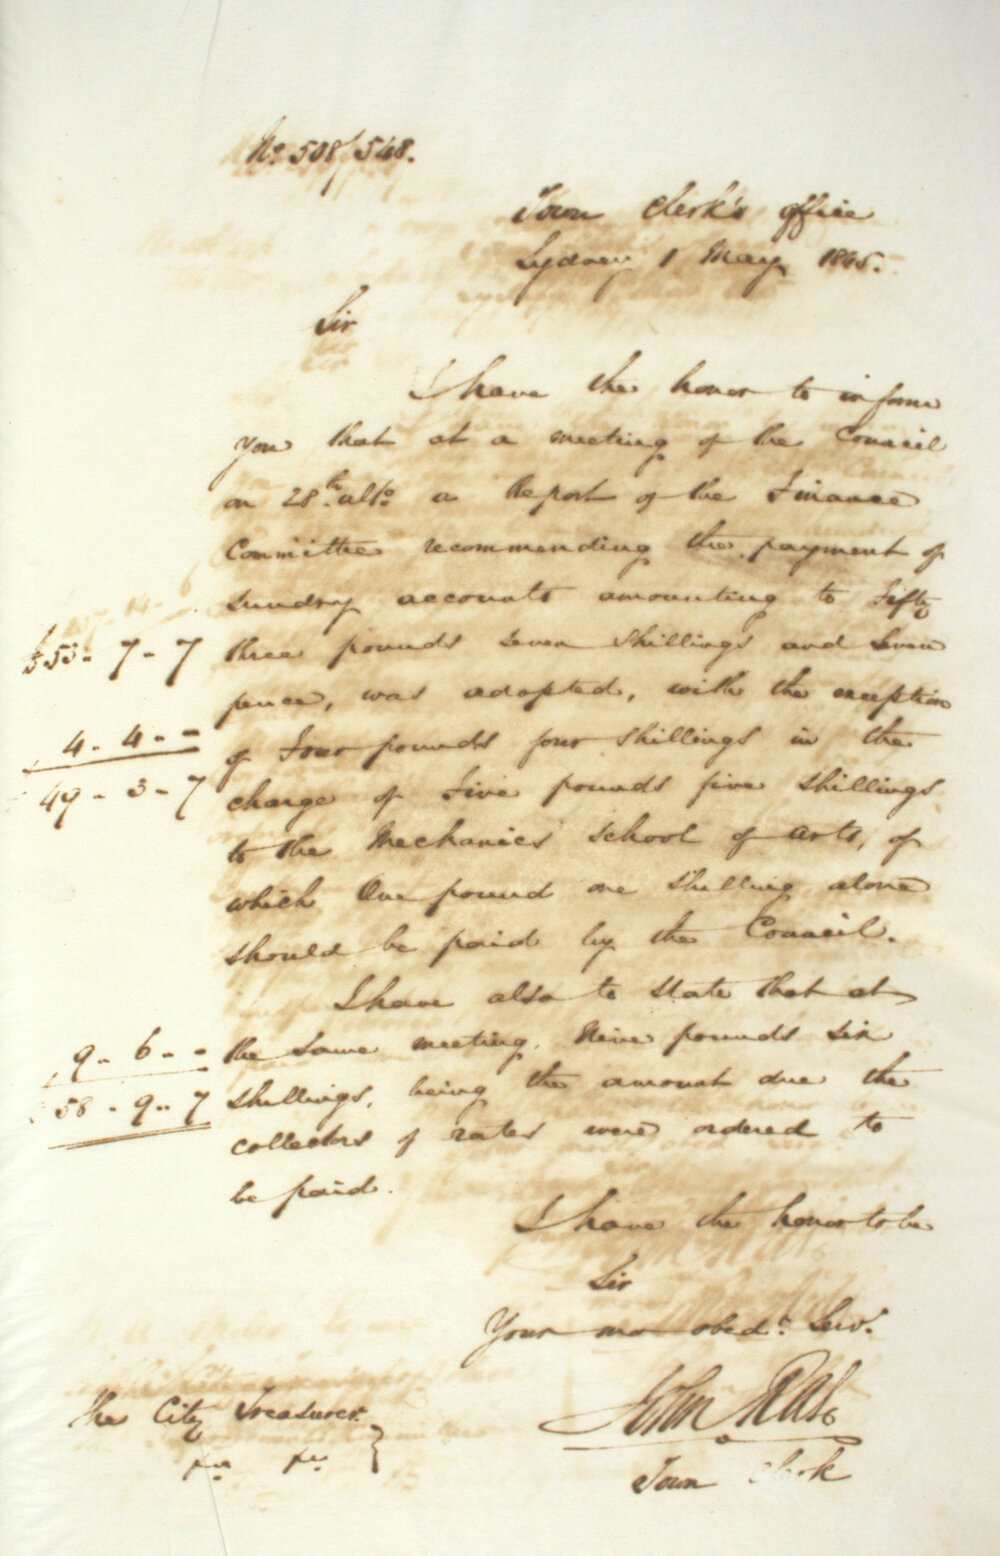 No. 508/548.
Town Clerk's office
Sydney 1 May 1845.
Sir
I have the honor to inform
you that at a meeting of the Council
on 28th. ulto a Report of the Finance
Committee recommending the payment of
sundry accounts amounting to Fifty
£53 - 7 - 7 three pounds seven shillings and seven
pence, was adopted, with the exception
4 - 4 - - of Four pounds four shillings in the
49 - 3 - 7 charge of Five pounds five shillings
to the Mechanics' School of Arts, of
which One pound one shilling alone
should be paid by the Council.
I have also to state that at
9 - 6 - - the same meeting, Nine pounds six
58 - 9 - 7 shillings, being the amount due the
collectors of rates were ordered to
be paid.
I have the honor to be
Sir
Your mo obedt. Servt.
John Rae
The City Treasurer
Town Clerk